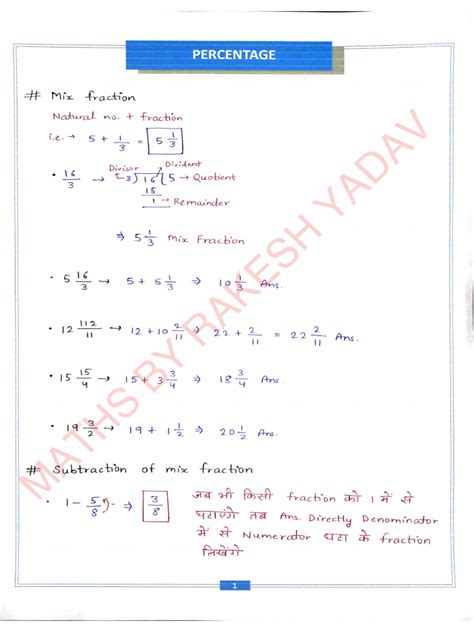 PERCENTAGE
# Mix fraction
Natural no. + fraction
i.e. → 5 + 1/3 = 5 1/3
Divisor Divident
• 16/3 → 3) 16 (5 → Quotient
15
1 → Remainder
⇒ 5 1/3 Mix fraction
• 5 16/3 → 5 + 5 1/3 ⇒ 10 1/3 Ans.
• 12 112/11 → 12 + 10 2/11 ⇒ 22 + 2/11 = 22 2/11 Ans.
• 15 15/4 → 15 + 3 3/4 ⇒ 18 3/4 Ans.
• 19 3/2 → 19 + 1 1/2 ⇒ 20 1/2 Ans.
# Subtraction of mix fraction
• 1 - 5/8 ⇒ 3/8
जब भी किसी fraction को 1 में से
घटाएंगे तब Ans. Directly Denominator
में से Numerator घटा के fraction
लिखेंगे
MATHS BY RAKESH YADAV
1